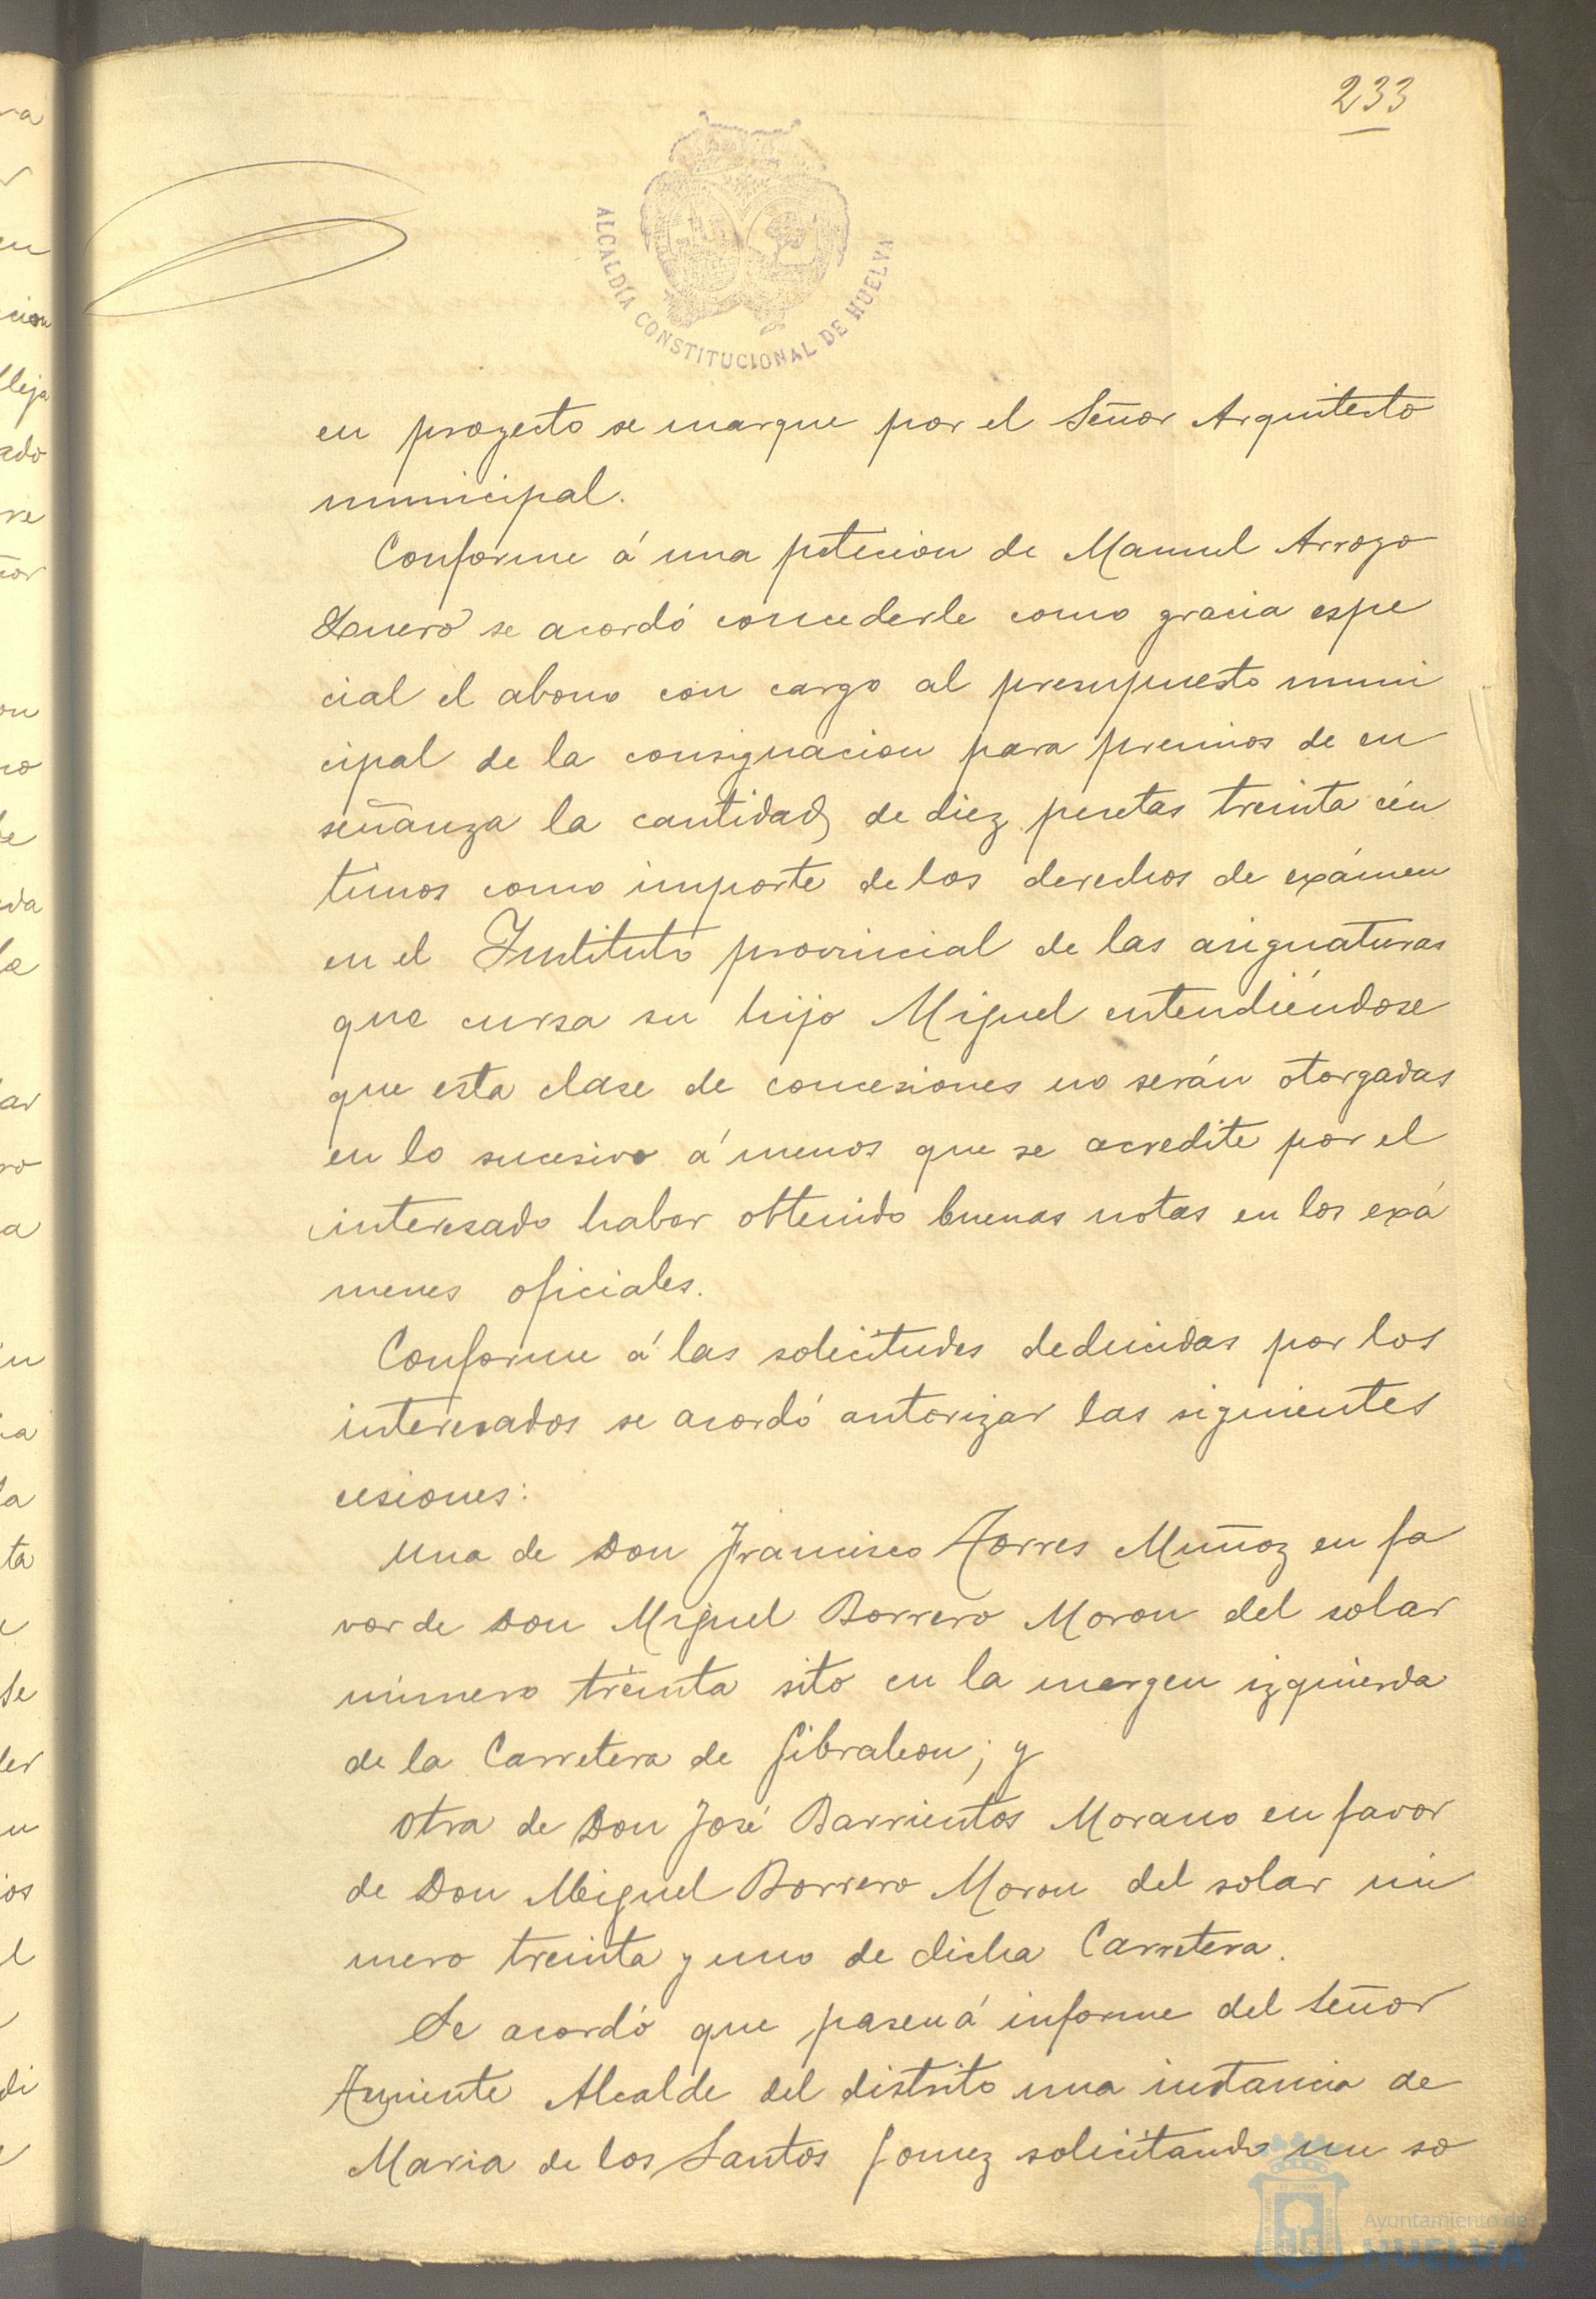 233
ALCALDÍA CONSTITUCIONAL DE HUELVA
en proyecto se marque por el Señor Arquitecto
municipal.
Conforme á una peticion de Manuel Arroyo
se acordó concederle como gracia espe
cial el abono con cargo al presupuesto muni
cipal de la consignacion para premios de en
señanza la cantidad de diez pesetas treinta cén
timos como importe de los derechos de exámen
en el Instituto provincial de las asignaturas
que cursa su hijo Miguel entendiéndose
que esta clase de concesiones no serán otorgadas
en lo sucesivo á menos que se acredite por el
interesado haber obtenido buenas notas en los exá
menes oficiales.
Conforme á las solicitudes deducidas por los
interesados se acordó autorizar las siguientes
cesiones:
Una de Don Francisco Torres Muñoz en fa
vor de Don Miguel Borrero Moron del solar
número treinta sito en la margen izquierda
de la Carretera de Gibraleon; y
Otra de Don José Barrientos Morano en favor
de Don Miguel Borrero Moron del solar nú
mero treinta y uno de dicha Carretera.
Se acordó que pasen á informe del Señor
Teniente Alcalde del distrito una instancia de
Maria de los Santos Gomez solicitando un so
Ayuntamiento de
HUELVA